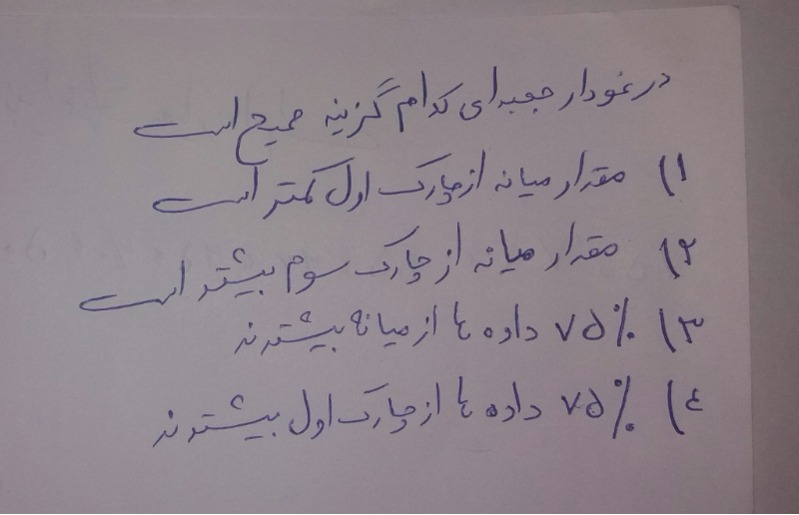 در نمودار جعبه ای کدام گزینه صحیح است
۱) مقدار میانه از چارک اول کمتر است
۲) مقدار میانه از چارک سوم بیشتر است
۳) ۷۵٪ داده ها از میانه بیشترند
۴) ۷۵٪ داده ها از چارک اول بیشترند